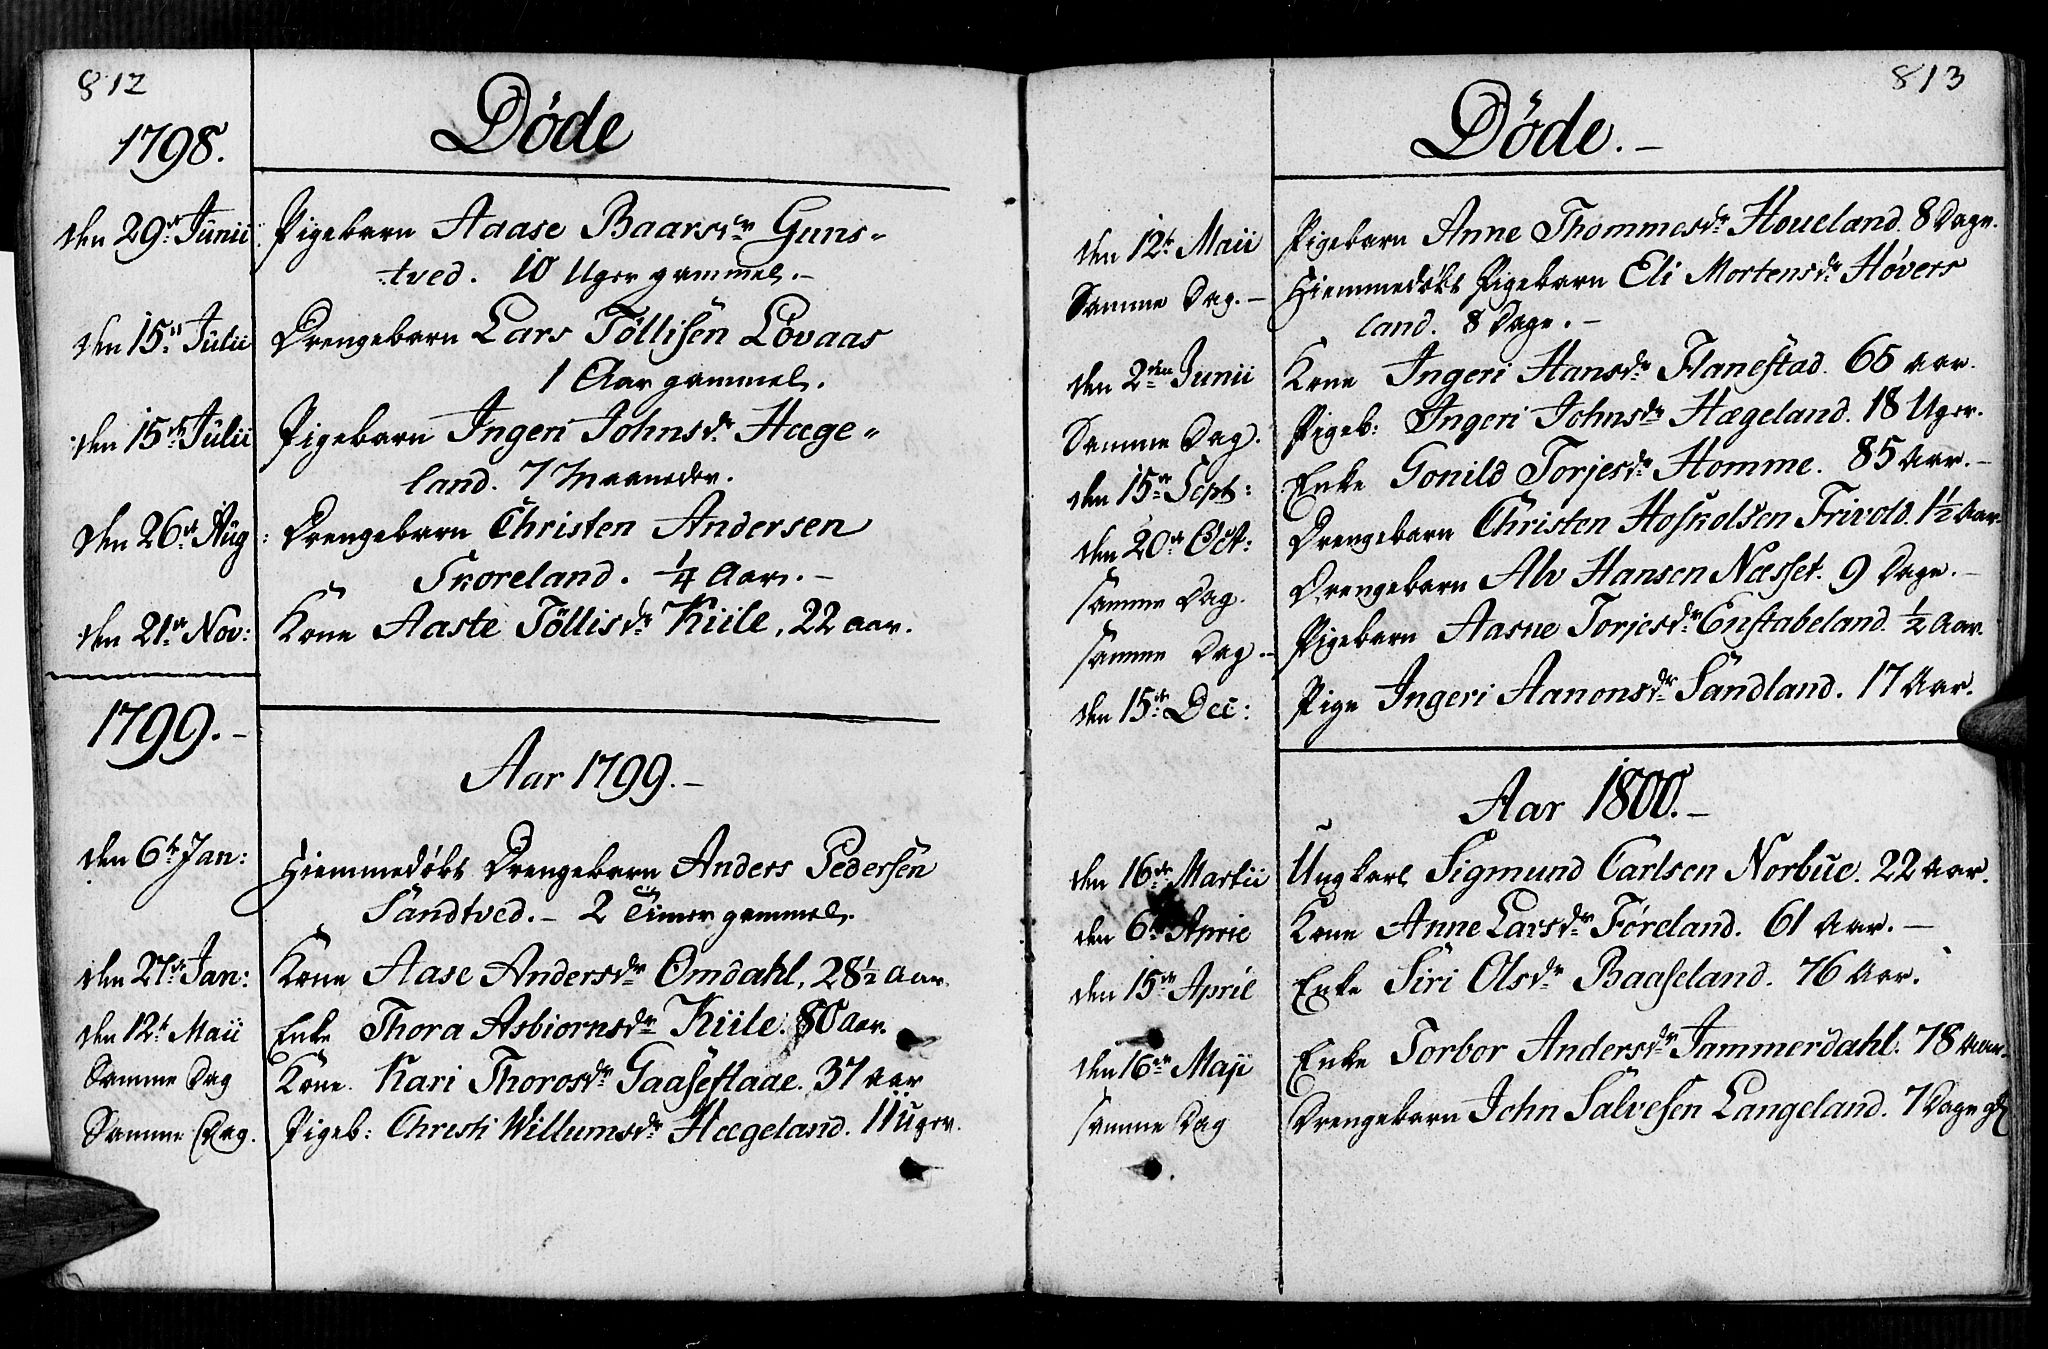 812
1798.
Döde
den 29de Junii Pigebarn Aaase Baarsdr Guns=
tved. 10 Uger gammel.
den 15de Julii Drengebarn Lars Töllisen Lövaas
1 Aar gammel.
den 15de Julii Pigebarn Ingeri Johnsdr Hæge=
land. 7 Maaneder.
den 26de Aug: Drengebarn Christen Andersen
Skoreland. 1/4 Aar.
den 21de Nov: Kone Aaste Töllisdr Kiile, 22 aar.
1799.
Aar 1799.
den 6te Jan: Hiemmedøbt Drengebarn Anders Pedersen
Sandtved. 2 Timer gammel.
den 27de Jan: Kone Aase Andersdr Omdahl, 28 1/2 Aar.
den 12te Maii Enke Thora Asbiornsdr Kiile. 80 Aar.
Samme Dag Kone. Kari Thorosdr Gaasestaae. 37 Aar
Samme Dag. Pigeb: Christi Willumsdr Hægeland. 11 Uger.
813
Döde.
den 12te Maii Pigebarn Anne Thommesdr Houeland. 8 Dage.
Samme Dag. Hiemmedøbt Pigebarn Eli Mortensdr Høvers
land. 8 Dage.
den 2den Junii Kone Ingeri Hansdr Flanestad. 65 Aar.
Samme Dag. Pigeb: Ingeri Johnsdr Hægeland. 18 Uger.
den 15de Sept: Enke Gonild Torjesdr Homme. 85 Aar.
den 20de Oct: Drengebarn Christen Hoskolsen Frivold. 1 1/2 Aar
samme Dag. Drengebarn Alv Hansen Næsset. 9 Dage.
samme Dag. Pigebarn Aasne Torjesdr Enstabeland. 1/2 Aar.
den 15de Dec: Pige Ingeri Aanonsdr Sandland. 17 Aar.
Aar 1800.
den 16de Martii Ungkarl Sigmund Carlsen Norbue. 22 Aar.
den 6te April Kone Anne Larsdr Føreland. 61 Aar.
den 15de April Enke Siri Olsdr Baaseland. 76 Aar.
den 16de Maji Enke Torbor Andersdr Jammerdahl. 78 Aar.
samme Dag Drengebarn John Salvesen Langeland. 7 Dage gl